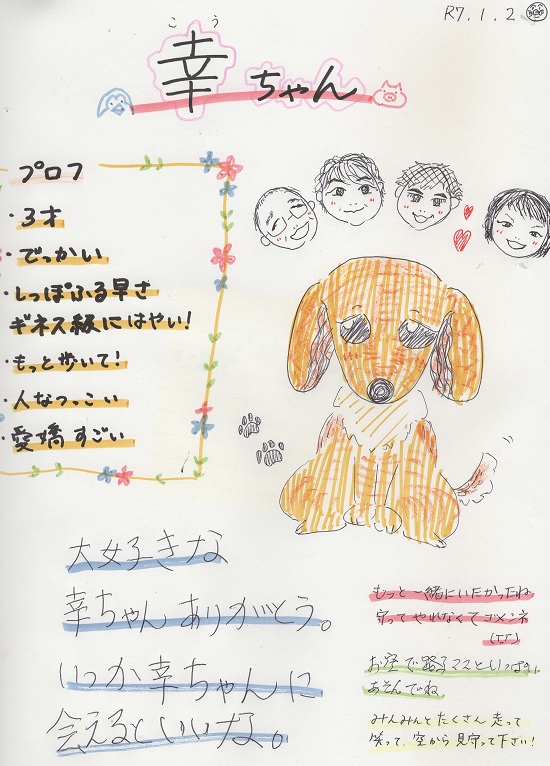 R7.1.2
こう
幸ちゃん
プロフ
・3才
・でっかい
・しっぽふる早さ
ギネス級にはやい!
・もっと歩いて!
・人なつっこい
・愛嬌すごい
大好きな
幸ちゃんありがとう。
いつか幸ちゃんに
会えるといいな。
もっと一緒にいたかったね
守ってやれなくてゴメンネ
お空で
ママといっぱい
あそんでね
みんみんとたくさん走って
笑って、空から見守って下さい!